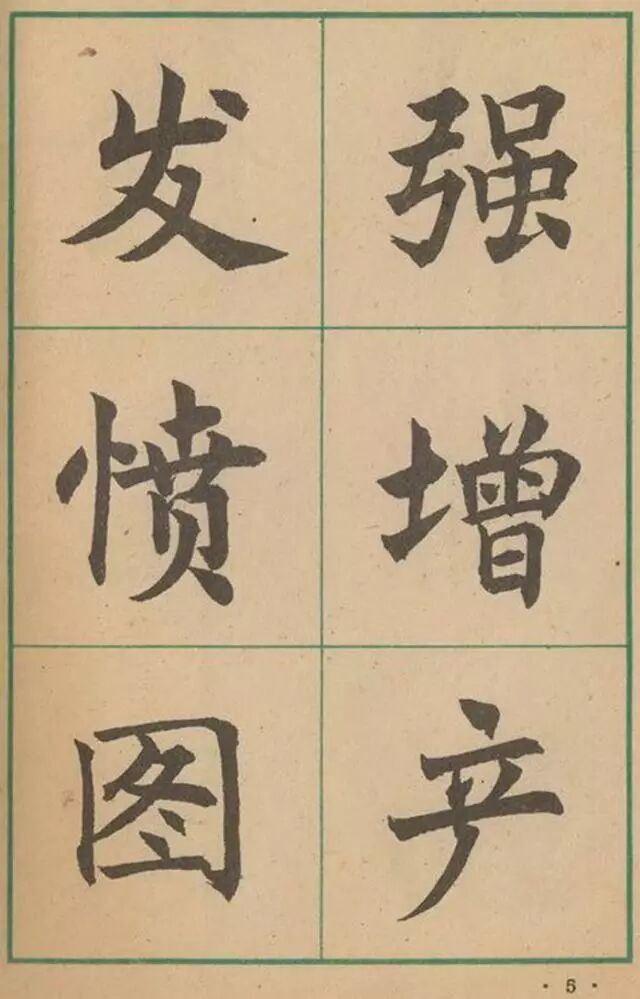 发愤图
强增产
· 5 ·